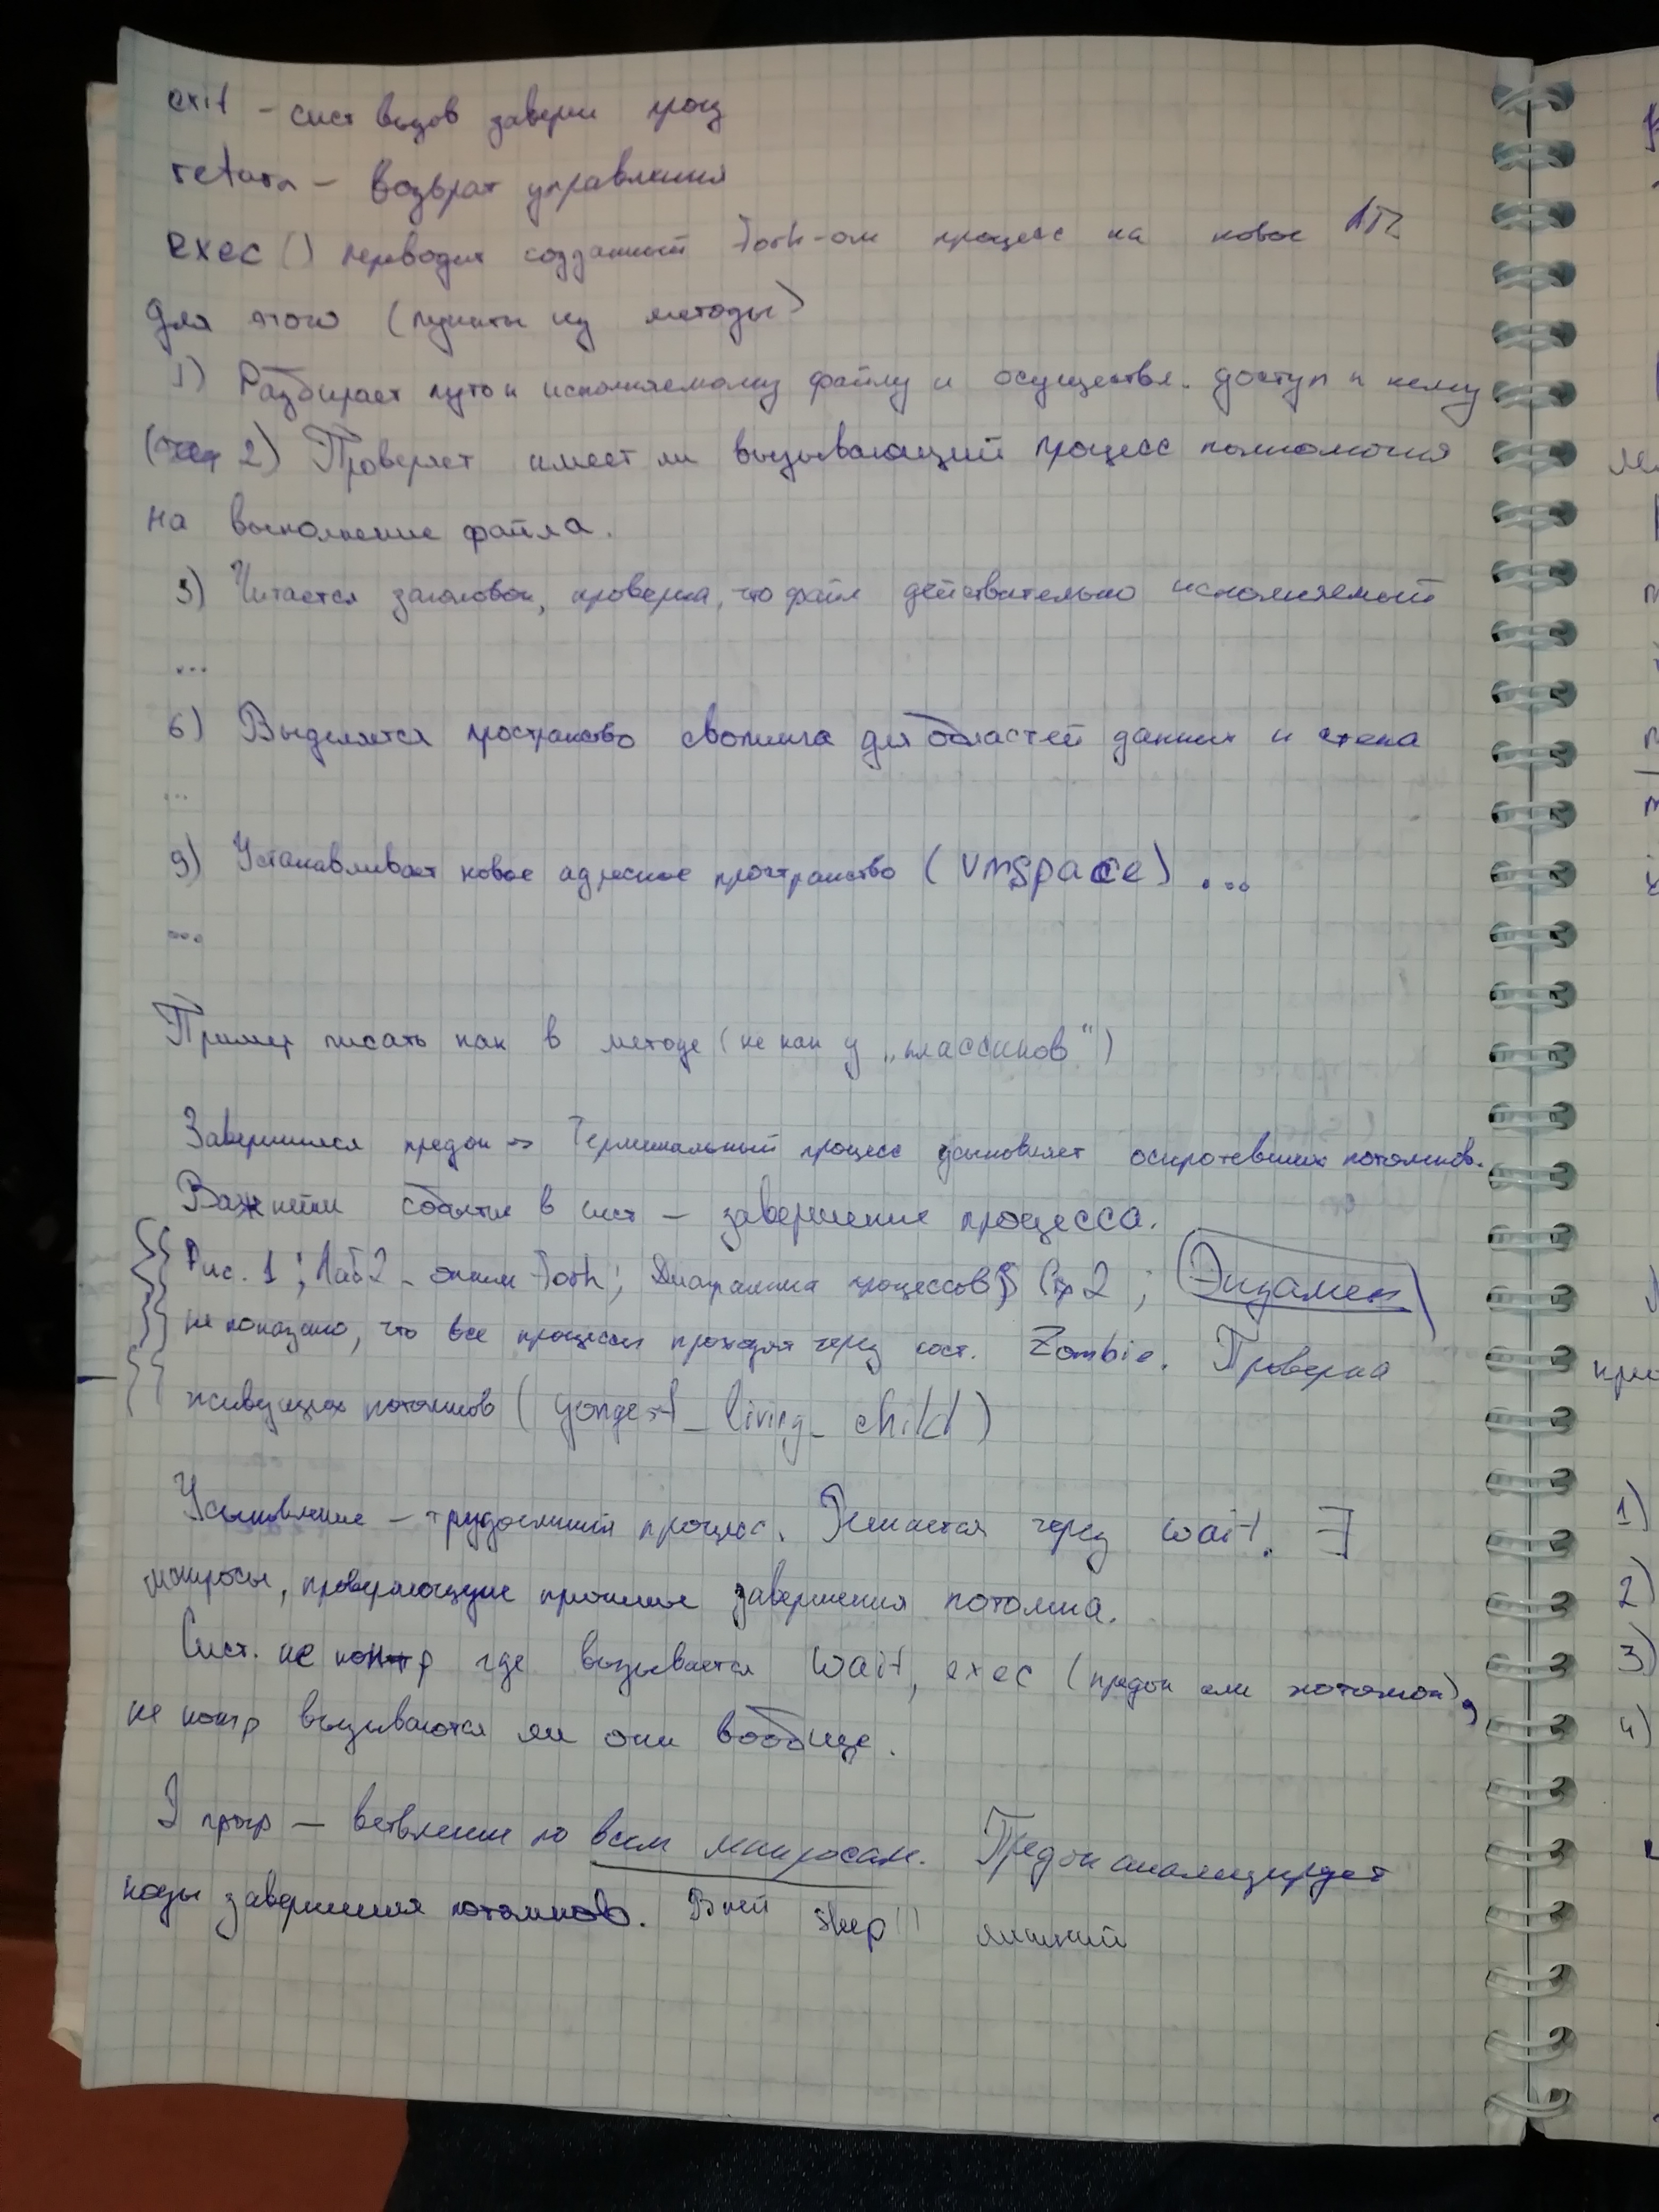 exit – сист вызов заверш проц
return – возврат управления
exec() переводит созданный fork-ом процесс на новое АП.
Для этого (пункты из методы)
1) Разбирает путь к исполняемому файлу и осуществл. доступ к нему
2) Проверяет имеет ли вызывающий процесс полномочия
на выполнение файла.
3) Читается заголовок, проверка, что файл действительно исполняемый
...
6) Выделяется пространство свопинга для областей данных и стека
...
9) Устанавливает новое адресное пространство (vmspace) ...
...
Пример писать как в методе (не как у „классиков“)
Завершился предок -> Терминальный процесс усыновляет осиротевших потомков.
Важнейшее событие в сист – завершение процесса.
Рис. 1; Лаб2 – опять fork; Диаграмма процессов 2; Экзамен
не показано, что все процессы проходят через сост. Zombie. Проверка
живущих потомков (yongest_living_child)
Усыновление – трудоемкий процесс. Решается через wait. ∃
макросы, проверяющие причины завершения потомка.
Сист. не контр где вызывается wait, exec (предок или потомок),
не контр вызываются ли они вообще.
прогр – ветвление по всем макросам. Предок анализирует
коды завершения потомков. В ней sleep() лишний